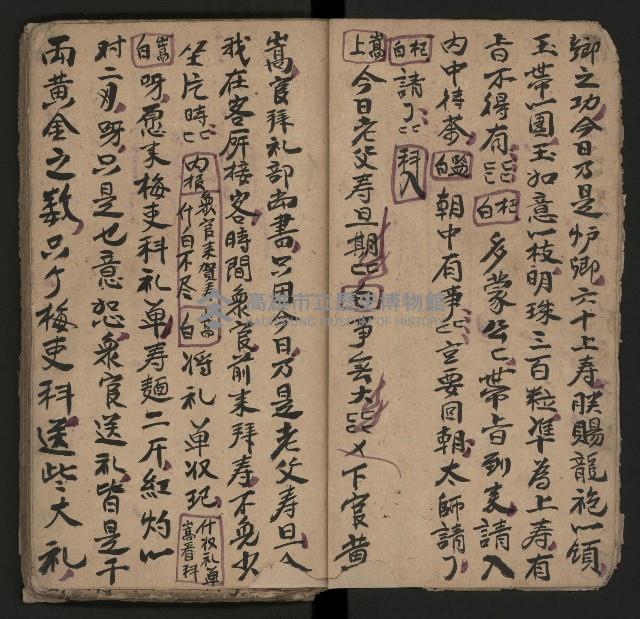 卿之功今日乃是炉卿六十上寿朕賜龍袍一領
玉帶一圍玉如意一枝明珠三百粒準為上寿有
旨不得有 杞白 多蒙公公帶旨到来請入
内中待茶 監白 朝中有事 要回朝太師請了
杞白 請了 科入
嵩上 今日老父寿旦期 白 下官黄
嵩官拜礼部尚書只因今日乃是老父寿旦入
我在客所接客時間衆官前来拜寿不免少
坐片時 内报 衆官来賀寿 什白不尽 嵩白 将礼单收起 什收礼单 嵩看科
嵩白 呀愿来梅吏科礼单寿麵二斤紅灼一
对二刃呀只是乜意恐衆官送礼皆是千
両黄金之数只个梅吏科送此大礼
高雄市立歷史博物館
KAOHSIUNG MUSEUM OF HISTORY